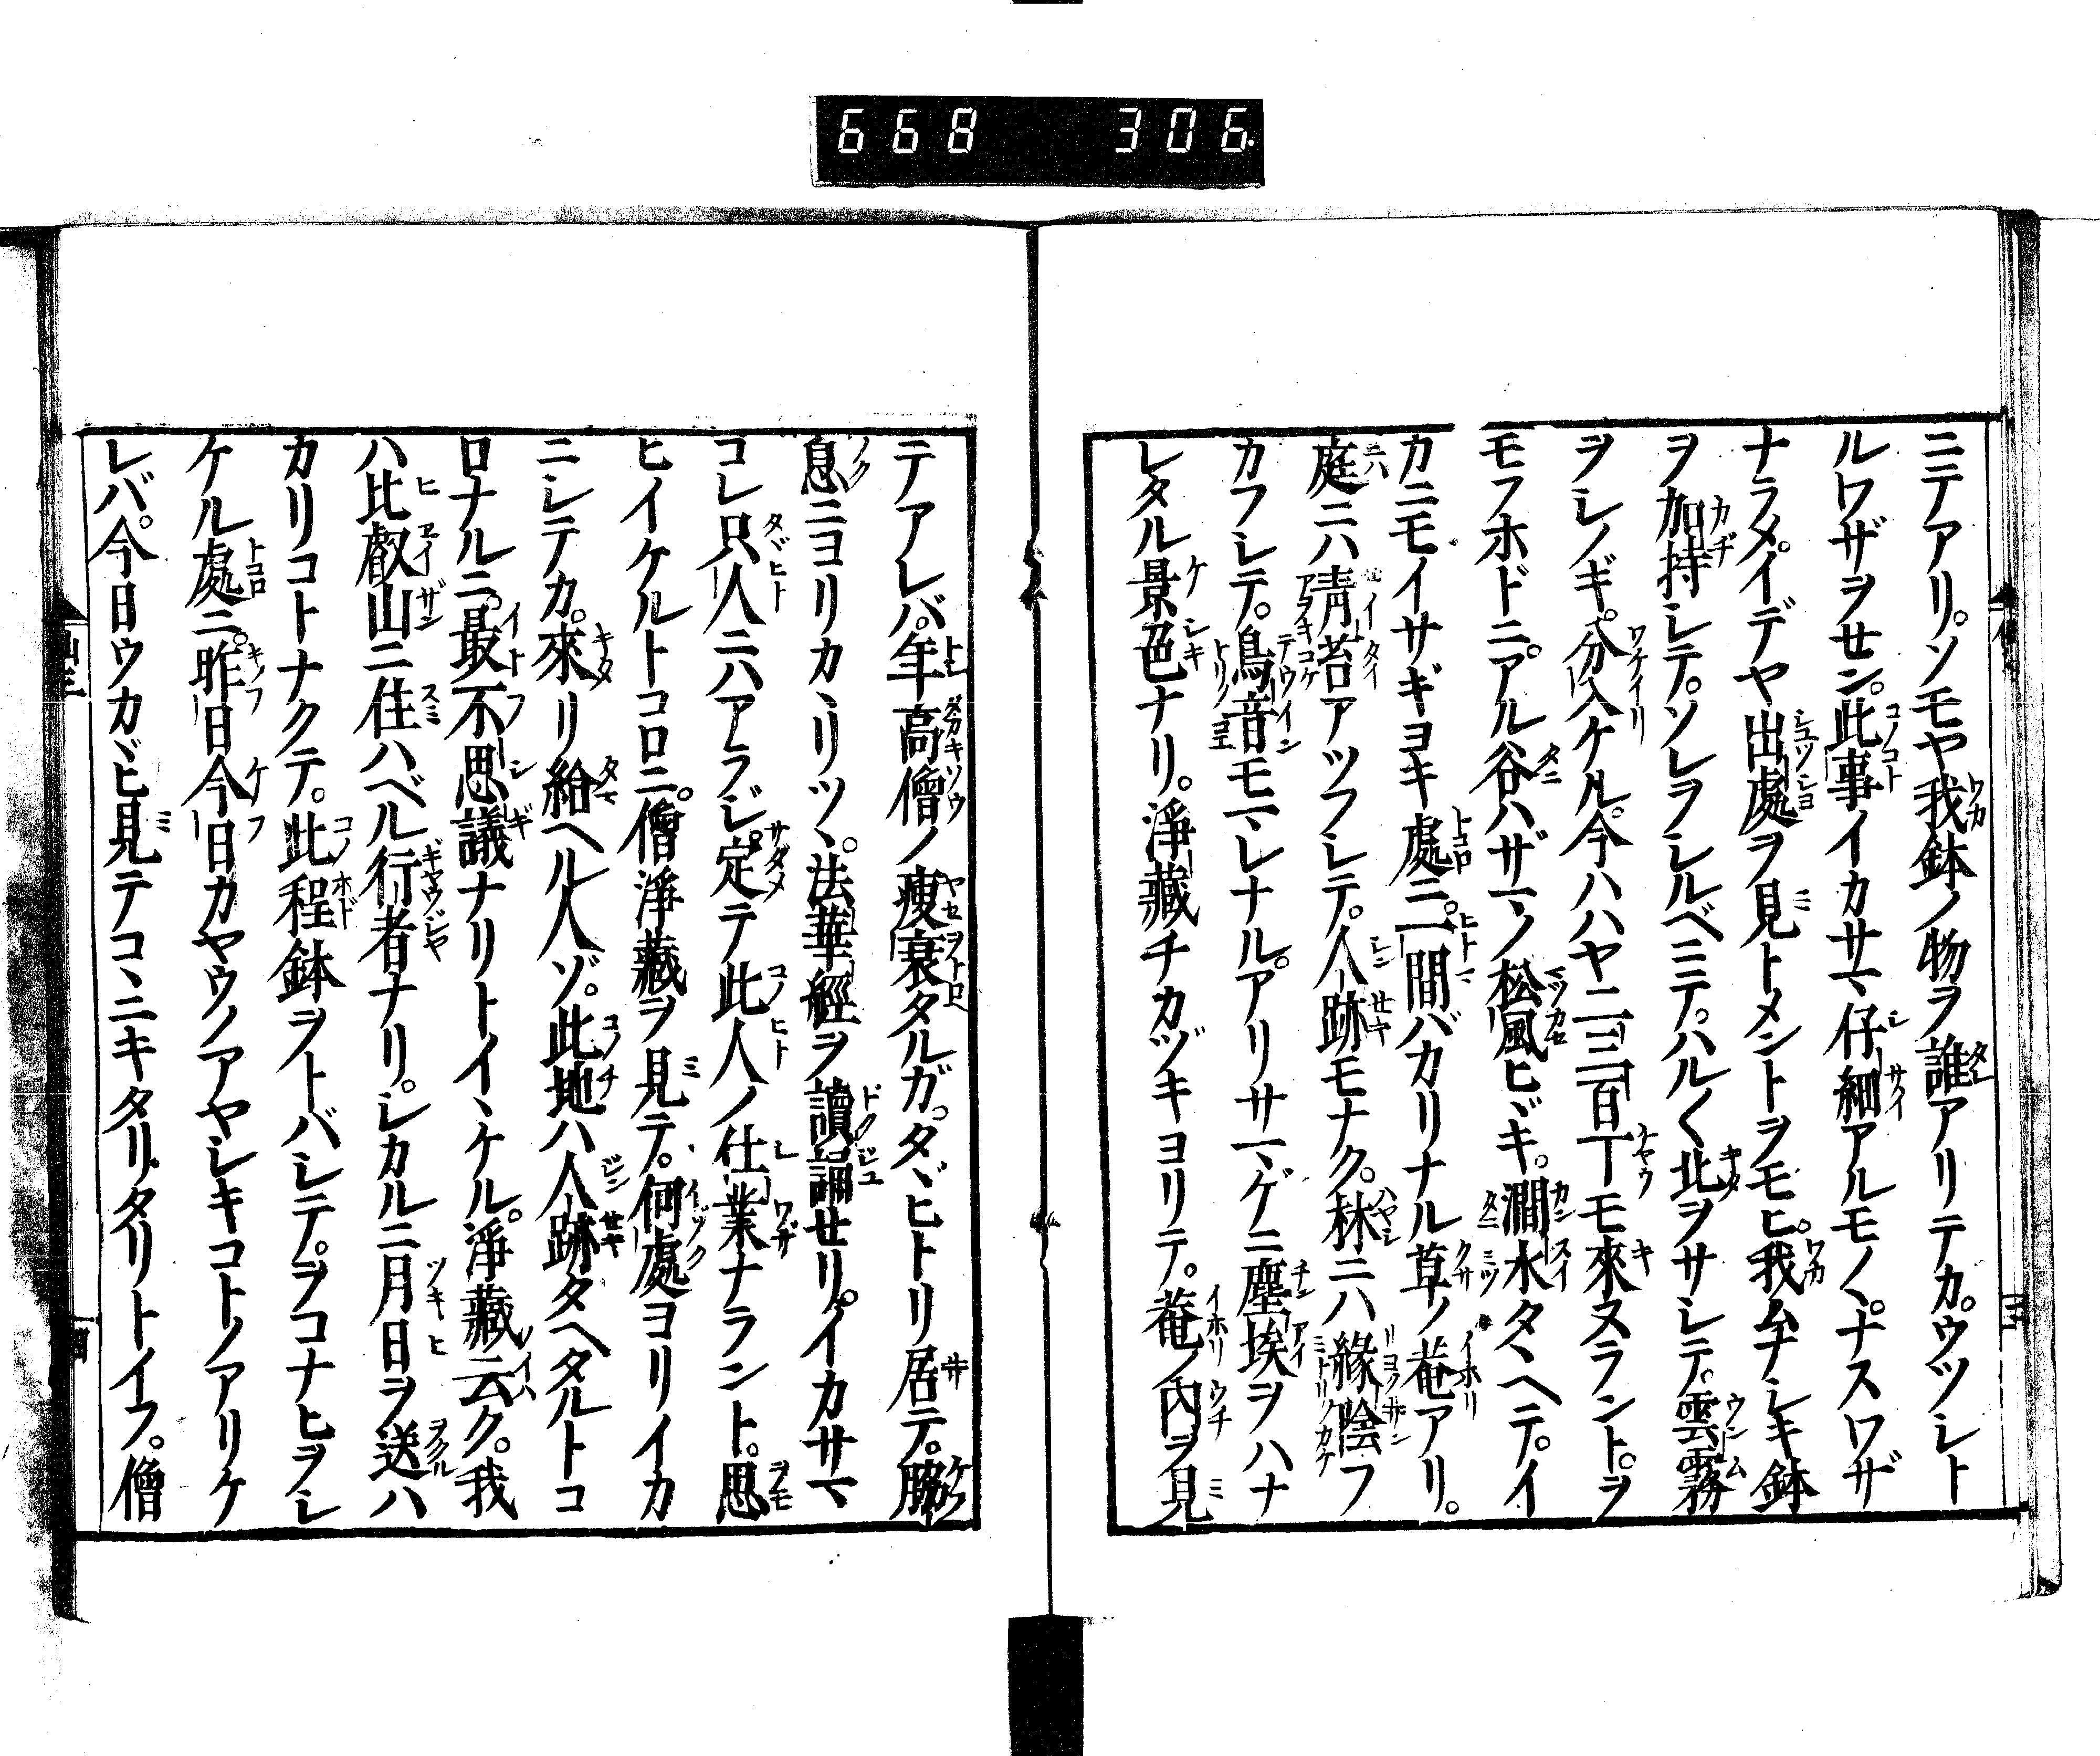 668 306
ニテアリ。ソモヤ我鉢ノ物ヲ誰アリテカ。ウツシト
ルワザヲセン。此事イカサマ仔細アルモノ〱。ナスワザ
ナラメ。イデヤ出處ヲ見トメントヲモヒ。我ムナシキ鉢
ヲ加持シテ。ソレヲシルベニテ。ハル〱北ヲサシテ。雲霧
ヲシノギ。分入ケル。今ハハヤ二三百丁モ來ヌラント。ヲ
モフホドニ。アル谷ハザマノ松風ヒヾキ。澗水タヽヘテ。イ
カニモイサギヨキ處ニ。一間バカリナル草ノ菴アリ。
庭ニハ靑苔アツフシテ。人跡モナク。林ニハ緣陰フ
カフシテ。鳥音モマレナル。アリサマゲニ塵埃ヲハナ
レタル景色ナリ。淨藏チカヅキヨリテ。菴ノ內ヲ見
テアレバ。年高僧ノ痩衰タルガ。タヾヒトリ居テ。脇
息ニヨリカヽリツヽ。法華經ヲ讀誦セリ。イカサマ
コレ只人ニハアラジ。定テ此人ノ仕業ナラント。思
ヒイケルトコロニ。僧淨藏ヲ見テ。何處ヨリイカ
ニシテカ。來リ給ヘル人ゾ。此地ハ人跡タヘタルトコ
ロナルニ。最不思議ナリトイヽケル。淨藏云ク。我
ハ比叡山ニ住ハベル行者ナリ。シカルニ月日ヲ送ハ
カリコトナクテ。此程鉢ヲトバシテ。ヲコナヒヲシ
ケル處ニ。昨日今日カヤウノアヤシキコトノアリケ
レバ。今日ウカヾヒ見テコヽニキタリタリトイフ。僧